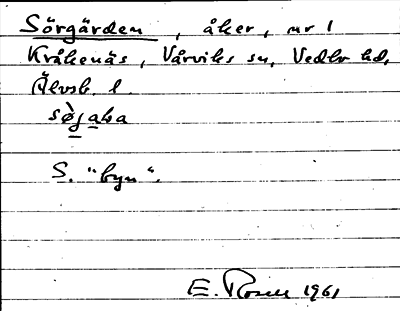 Sörgärden, åker, nr 1
Kråkenäs, Vårviks sn, Vedbo hd,
Älvsb. l.
sø̀jaka
S. "byn".
E. Rosell 1961